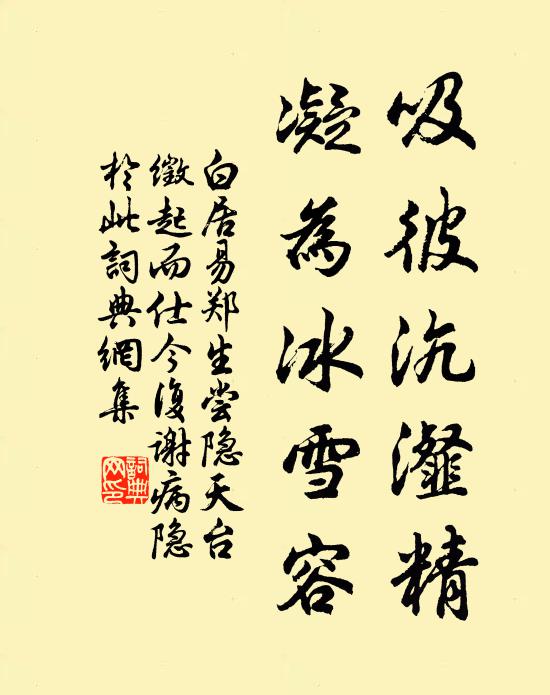 吸彼沆瀣精
凝為冰雪容
白居易郑生尝隐天台
徵起而仕今復谢病隐
於此詞典網集
詞典